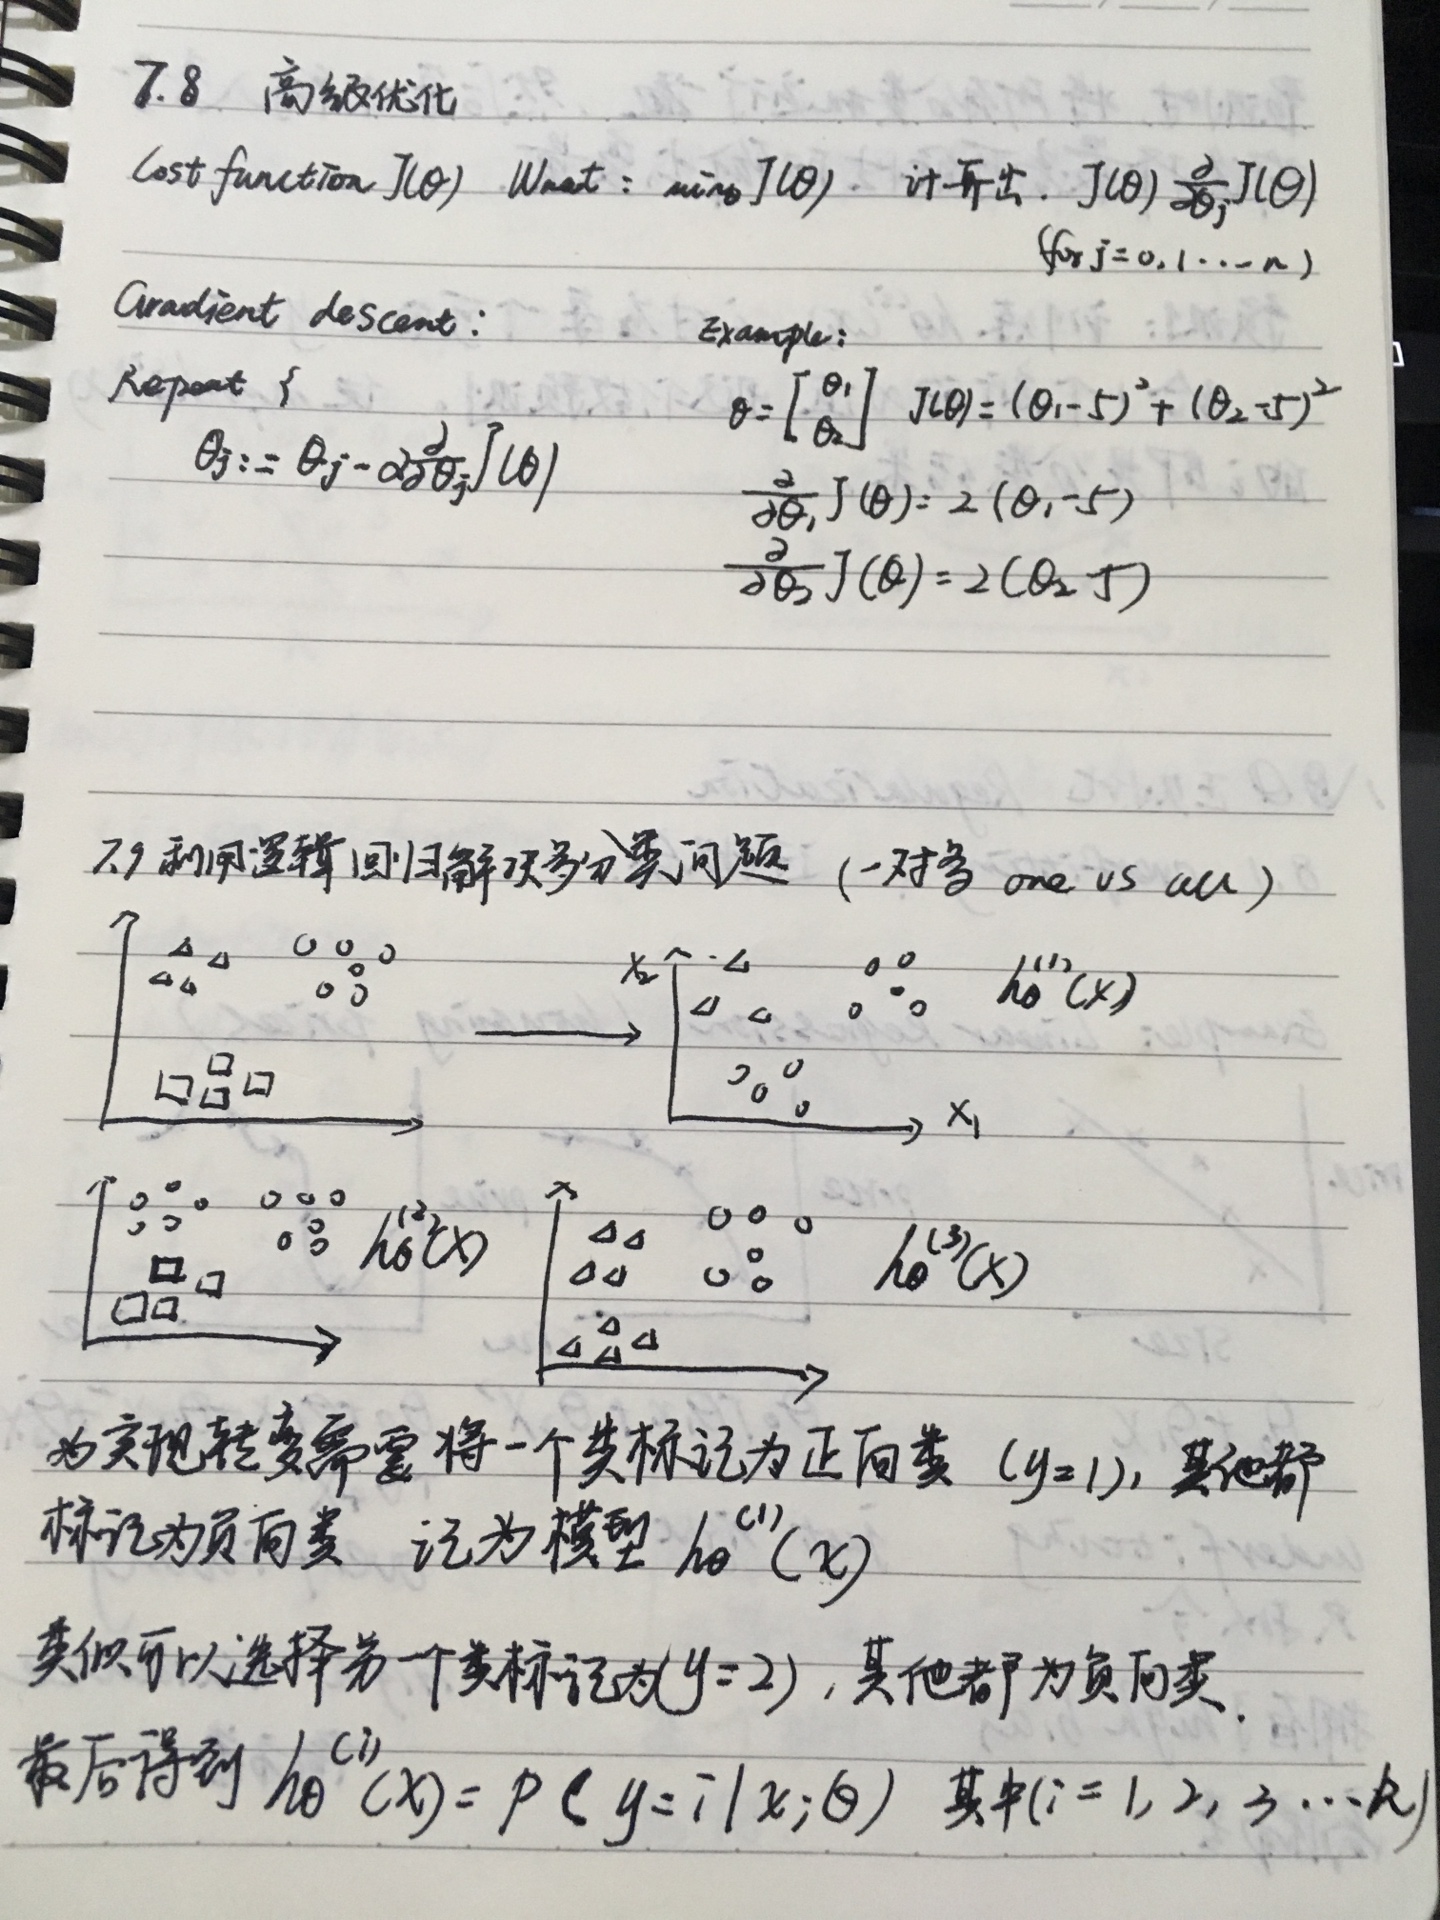 7.8 高级优化
Cost function J(θ) Want: minθ J(θ). 计算出. J(θ) ∂/∂θj J(θ)
(for j=0,1...n)
Gradient descent:
Example:
Repeat {
θ=[θ1 θ2] J(θ)=(θ1-5)²+(θ2-5)²
θj:=θj-α∂/∂θj J(θ)
∂/∂θ1 J(θ)=2(θ1-5)
∂/∂θ2 J(θ)=2(θ2-5)
7.9 利用逻辑回归解决多分类问题 (一对多 one vs all)
x2 hθ⁽¹⁾(x)
x1
hθ⁽²⁾(x) hθ⁽³⁾(x)
为实现转变需要将一个类标记为正向类 (y=1), 其他都
标记为负向类 记为模型 hθ⁽¹⁾(x)
类似可以选择另一个类标记为(y=2), 其他都为负向类.
最后得到 hθ⁽ⁱ⁾(x)=p(y=i|x;θ) 其中(i=1,2,3...k)